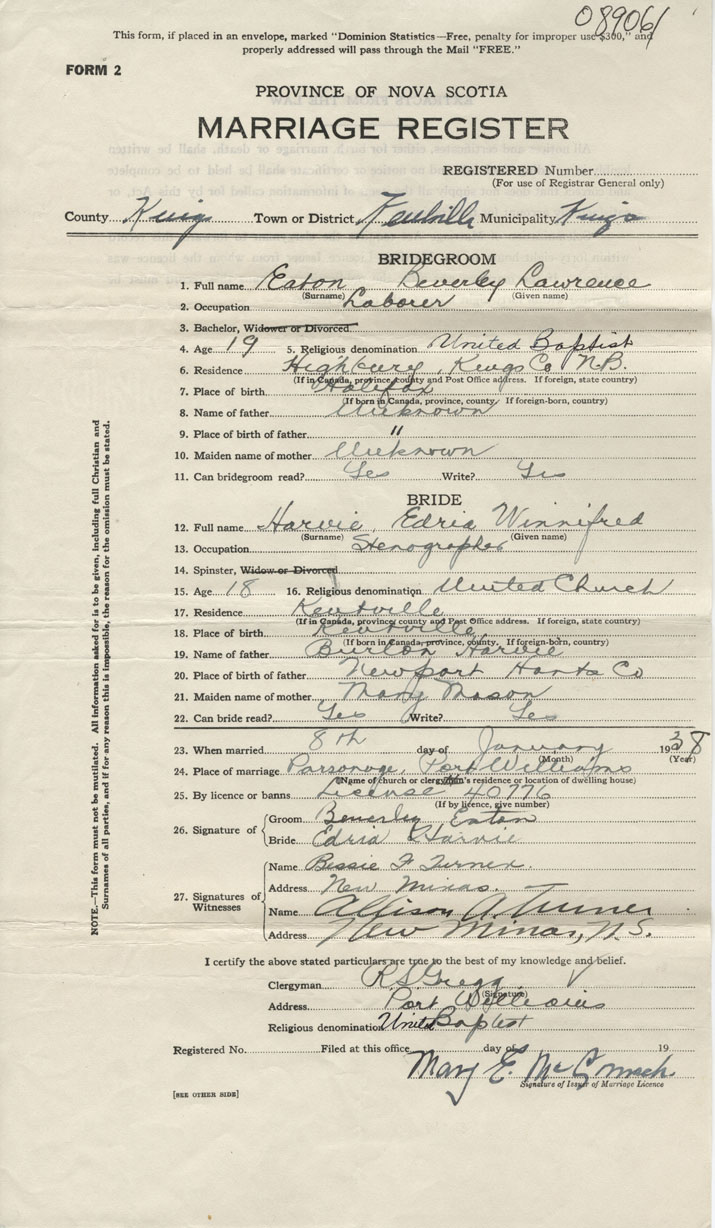 089061
This form, if placed in an envelope, marked "Dominion Statistics—Free, penalty for improper use $300," and
properly addressed will pass through the Mail "FREE."
FORM 2
PROVINCE OF NOVA SCOTIA
MARRIAGE REGISTER
REGISTERED Number
(For use of Registrar General only)
County Kings Town or District Kentville Municipality Kings
BRIDEGROOM
1. Full name Eaton Beverley Lawrence
(Surname) (Given name)
2. Occupation Laborer
3. Bachelor, Widower or Divorced
4. Age 19 5. Religious denomination United Baptist
6. Residence Highbury, Kings Co N.B.
(If in Canada, province, county and Post Office address. If foreign, state country)
7. Place of birth Halifax
(If born in Canada, province, county. If foreign-born, country)
8. Name of father Unknown
9. Place of birth of father "
10. Maiden name of mother Unknown
11. Can bridegroom read? Yes Write? Yes
BRIDE
12. Full name Harvie, Edria Winnifred
(Surname) (Given name)
13. Occupation Stenographer
14. Spinster, Widow or Divorced
15. Age 18 16. Religious denomination United Church
17. Residence Kentville
(If in Canada, province, county and Post Office address. If foreign, state country)
18. Place of birth Kentville
(If born in Canada, province, county. If foreign-born, country)
19. Name of father Burton Harvie
20. Place of birth of father Newport Hants Co
21. Maiden name of mother Mary Mason
22. Can bride read? Yes Write? Yes
23. When married 8th day of January 1938
(Month) (Year)
24. Place of marriage Parsonage, Port Williams
(Name of church or clergyman's residence or location of dwelling house)
25. By licence or banns License 40776
(If by licence, give number)
26. Signature of Groom Beverley Eaton
Bride Edria Harvie
27. Signatures of Witnesses
Name Bessie F Turner.
Address New Minas.
Name Allison A. Turner
Address New Minas, N.S.
I certify the above stated particulars are true to the best of my knowledge and belief.
Clergyman R S Gregg
(Signature)
Address Port Williams
Religious denomination United Baptist
Registered No. Filed at this office day of 19
Mary E.
Signature of Issuer of Marriage Licence
[SEE OTHER SIDE]
NOTE.—This form must not be mutilated. All information asked for is to be given, including full Christian and
Surnames of all parties, and if for any reason this is impossible, the reason for the omission must be stated.